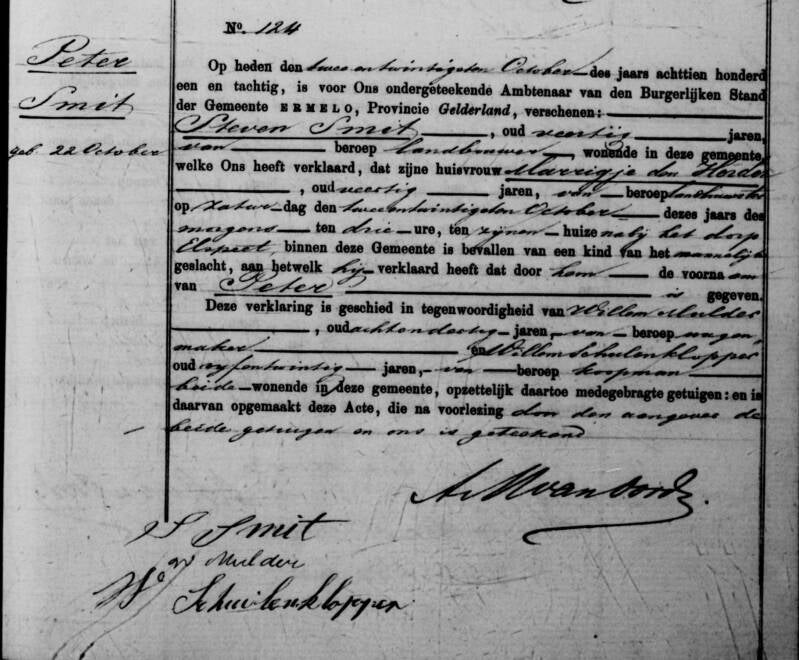 No. 124
Peter
Smit
geb. 22 October
Op heden den twee en twintigsten October des jaars achttien honderd
een en tachtig, is voor Ons ondergeteekende Ambtenaar van den Burgerlijken Stand
der Gemeente ERMELO, Provincie Gelderland, verschenen:
Steven Smit , oud veertig jaren,
van beroep landbouwer , wonende in deze gemeente,
welke Ons heeft verklaard, dat zijne huisvrouw Marrigje den Herder
, oud veertig jaren, van beroep
op zatur-dag den twee entwintigsten October dezes jaars des
morgens ten drie ure, ten zijnen huize nabij het dorp
Elspeet, binnen deze Gemeente is bevallen van een kind van het mannelijk
geslacht, aan hetwelk hij verklaard heeft dat door hem de voorna am
van Peter is gegeven.
Deze verklaring is geschied in tegenwoordigheid van Willem Mulder
, oud achtendertig jaren, van beroep wagen
maker en Willem Schuilenklopper
oud vyfentwintig jaren, van beroep koopman
beide wonende in deze gemeente, opzettelijk daartoe medegebragte getuigen: en is
daarvan opgemaakt deze Acte, die na voorlezing door den aangever de
beide getuigen en ons is geteekend
S Smit
W Mulder
W Schuilenklopper